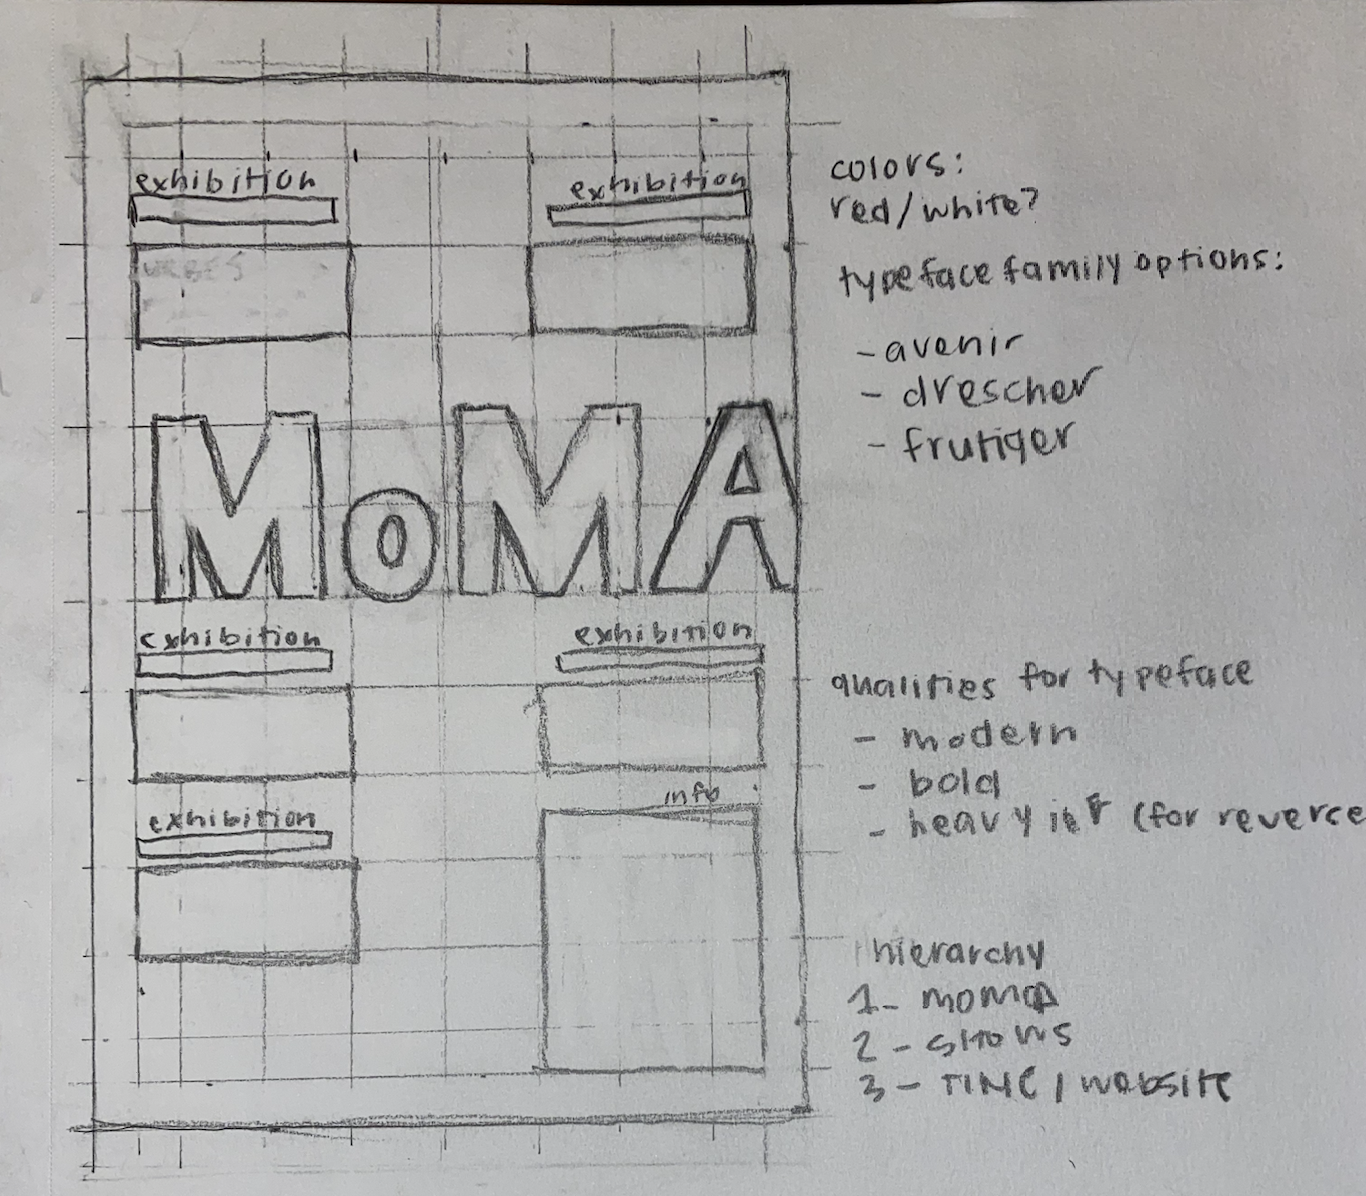 exhibition
exhibition
MoMA
exhibition
exhibition
info
exhibition
colors:
red/white?
typeface family options:
- avenir
- drescher
- frutiger
qualities for typeface
- modern
- bold
- heavy (for reverse
hierarchy
1- moma
2 - shows
3 - TIME / website